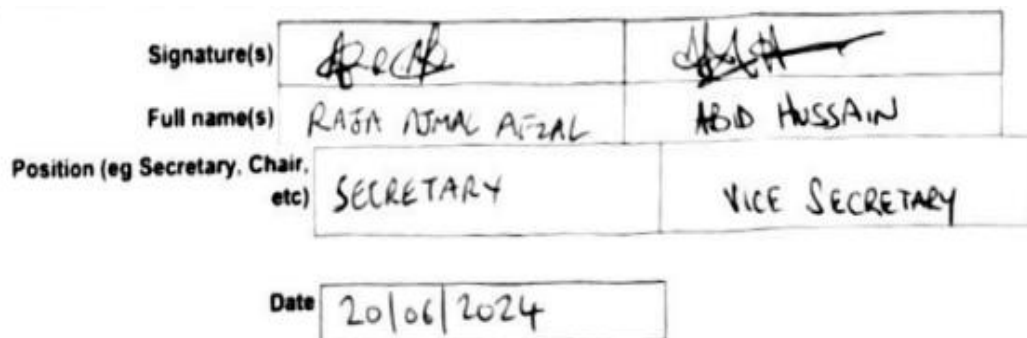 Signature(s)
Full name(s) RAJA AJMAL AFZAL ABID HUSSAIN
Position (eg Secretary, Chair, etc) SECRETARY VICE SECRETARY
Date 20/06/2024